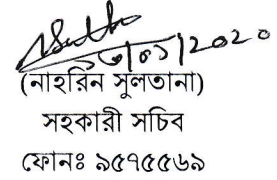 ২৩/০১/2020
(নাহরিন সুলতানা)
সহকারী সচিব
ফোনঃ ৯৫৭৫৫৬৯